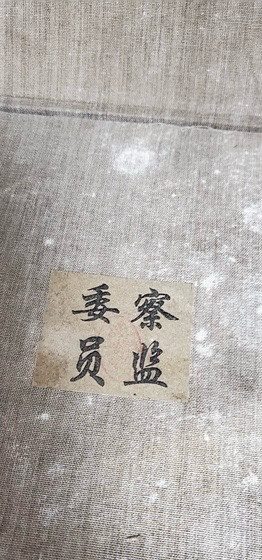 察监
委员